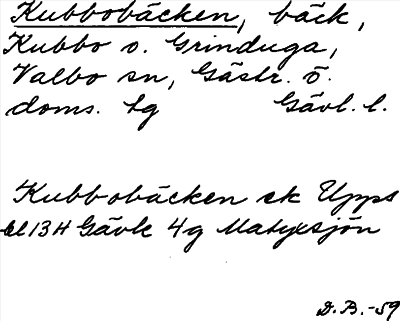 Kubbobäcken, bäck,
Kubbo o. Grinduga,
Valbo sn, Gästr. ö.
doms. lg Gävl. l.
Kubbobäcken ek Upps
bl 13 H Gävle 4g Matyxsjön
D.B.-59